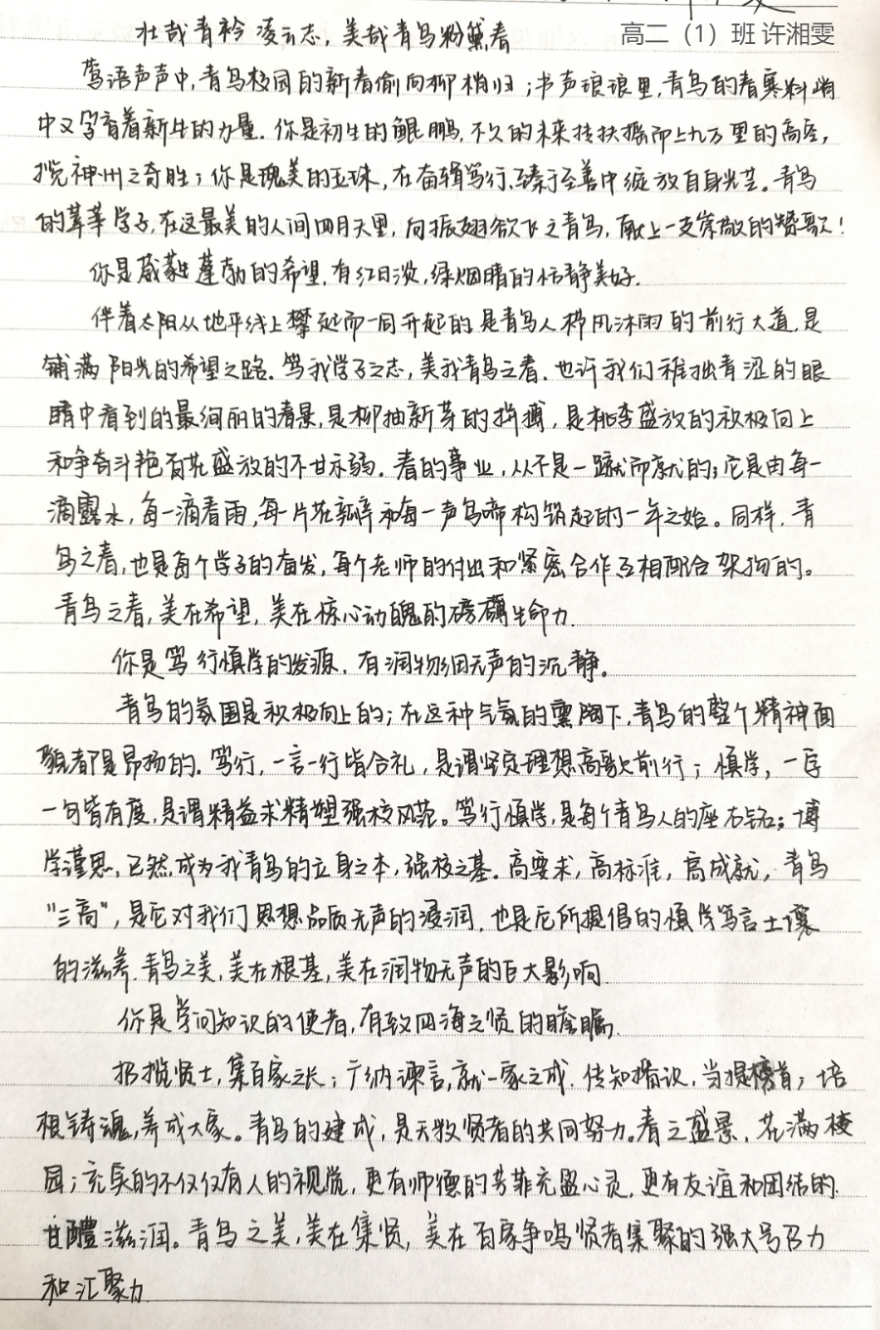 壮哉青衿凌云志，美哉青鸟粉黛春
高二（1）班 许湘雯
莺语声声中，青鸟校园的新春偷向柳梢归；书声琅琅里，青鸟的春寒料峭
中又孕育着新生的力量。你是初生的鲲鹏，不久的未来抟扶摇而上九万里的高空，
揽神州之奇胜；你是瑰美的玉珠，在奋辑笃行、臻于至善中绽放自身光芒。青鸟
的莘莘学子，在这最美的人间四月天里，向振翅欲飞之青鸟，献上一支崇敬的赞歌！
你是葳蕤蓬勃的希望，有红日淡，绿烟晴的恬静美好。
伴着太阳从地平线上攀延而一同升起的是青鸟人栉风沐雨的前行大道，是
铺满阳光的希望之路。笃我学子之志，美我青鸟之春。也许我们稚拙青涩的眼
睛中看到的最绚丽的春景，是柳抽新芽的拼搏，是桃李盛放的积极向上
和争奋斗艳百花盛放的不甘示弱。春的事业，从不是一蹴而就的；它是由每一
滴露水，每一滴春雨，每一片花瓣和每一声鸟啼构筑起的一年之始。同样，青
鸟之春，也是每个学子的奋发，每个老师的付出和紧密合作互相配合架构的。
青鸟之春，美在希望，美在惊心动魄的磅礴生命力。
你是笃行慎学的发源，有润物细无声的沉静。
青鸟的氛围是积极向上的；在这种气氛的熏陶下，青鸟的整个精神面
貌都是昂扬的。笃行，一言一行皆合礼，是谓坚定理想高歌前行；慎学，一字
一句皆有度，是谓精益求精塑强校风范。笃行慎学，是每个青鸟人的座右铭；博
学谨思，已然成为我青鸟的立身之本，强校之基。高要求，高标准，高成就，青鸟
“三高”，是它对我们思想品质无声的浸润，也是它所提倡的慎学笃言土壤
的滋养。青鸟之美，美在根基，美在润物无声的巨大影响。
你是学问知识的使者，有致四海之贤的瞻瞩。
招揽贤士，集百家之长；广纳谏言，就一家之成。传知揩识，当提榜首；培
根铸魂，养成大家。青鸟的建成，是无数贤者的共同努力。春之盛景，花满校
园；充实的不仅仅有人的视觉，更有师德的芳菲充盈心灵，更有友谊和团结的
甘醴滋润。青鸟之美，美在集贤，美在百家争鸣贤者集聚的强大号召力
和汇聚力。